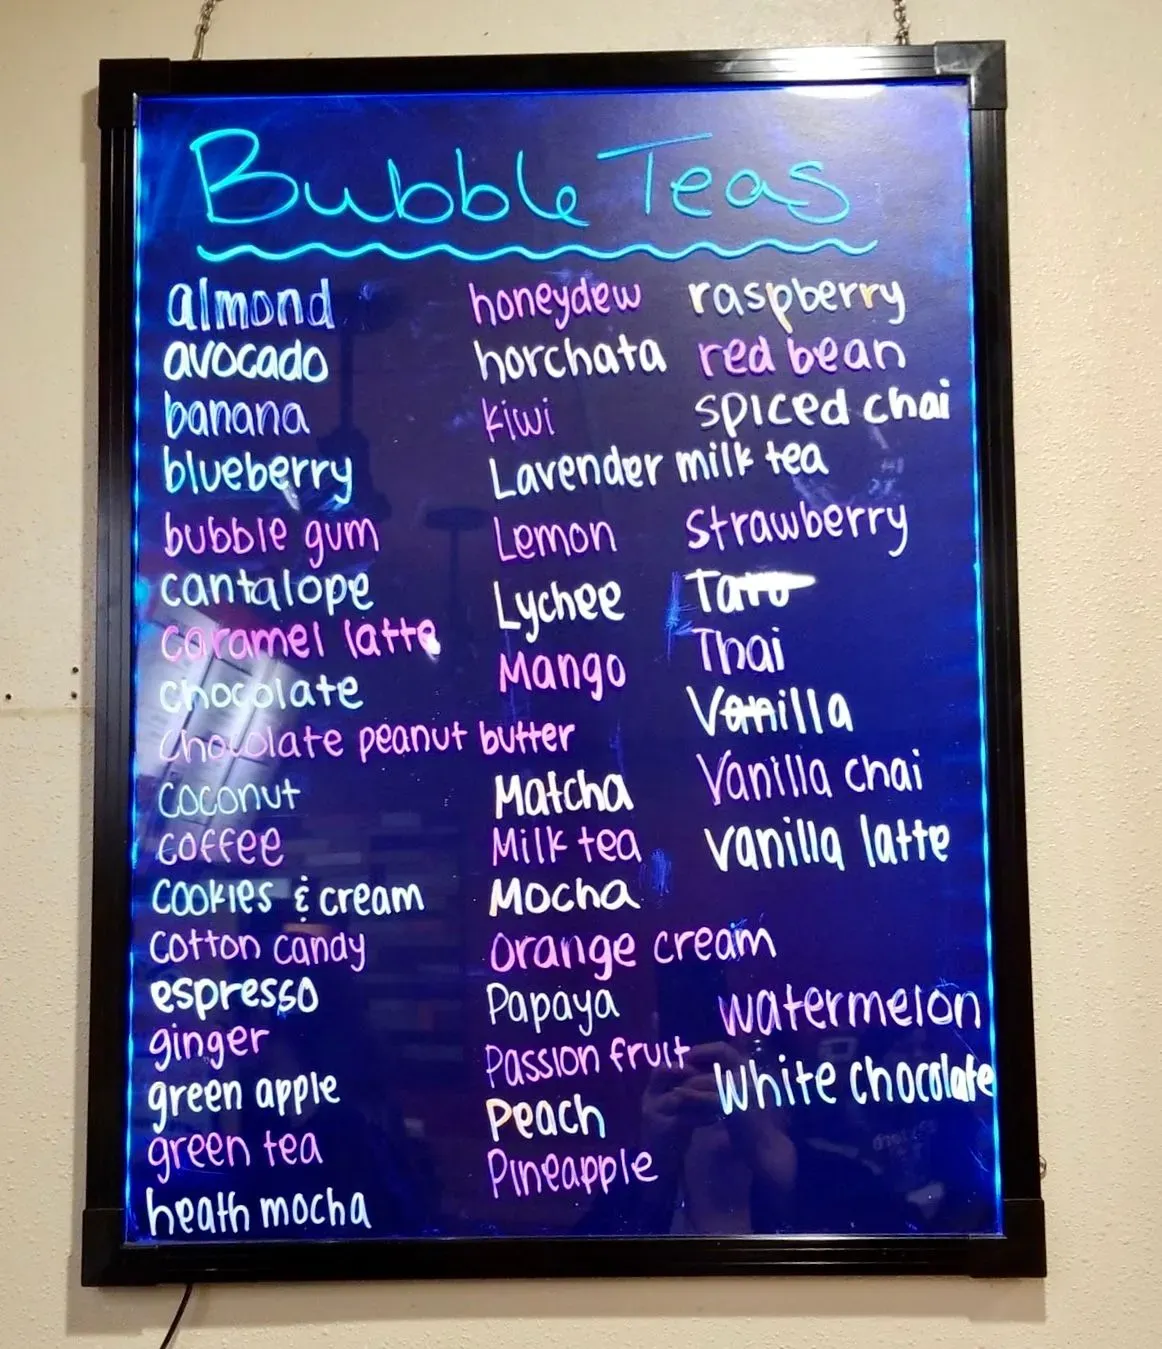 Bubble Teas
almond
avocado
banana
blueberry
bubble gum
cantalope
caramel latte
chocolate
chocolate peanut butter
coconut
coffee
cookies & cream
cotton candy
espresso
ginger
green apple
green tea
heath mocha
honeydew
horchata
kiwi
Lavender milk tea
Lemon
Lychee
Mango
Matcha
Milk tea
Mocha
orange cream
Papaya
Passion fruit
Peach
Pineapple
raspberry
red bean
spiced chai
strawberry
Taro
Thai
Vanilla
Vanilla chai
vanilla latte
watermelon
White chocolate